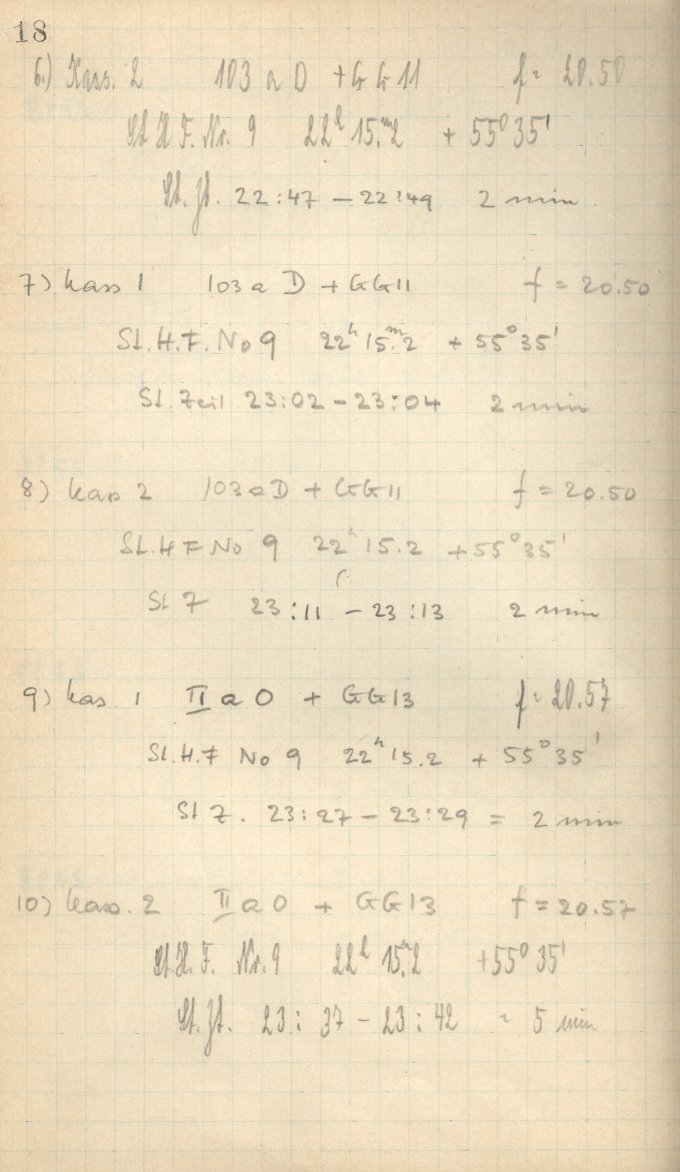 18
6.) Kass. 2 103 a D + GG 11 f = 20.50
St. H. F. Nr. 9 22h 15.m2 + 55° 35'
St. Zt. 22:47 – 22:49 2 min
7) Kass 1 103 a D + GG11 f = 20.50
St. H. F. No 9 22h 15.m2 + 55° 35'
St. Zeit 23:02 – 23:04 2 min
8) Kass 2 103 a D + GG11 f = 20.50
St. H F No 9 22h 15.2 + 55° 35'
St Z 23:11 – 23:13 2 min
9) Kas. 1 II a O + GG13 f = 20.57
St. H. F No 9 22h 15.2 + 55° 35'
St Z. 23:27 – 23:29 = 2 min
10) Kass. 2 II a O + GG13 f = 20.57
St. H. F. Nr. 9 22h 15.m2 + 55° 35'
St. Zt. 23:37 – 23:42 = 5 min